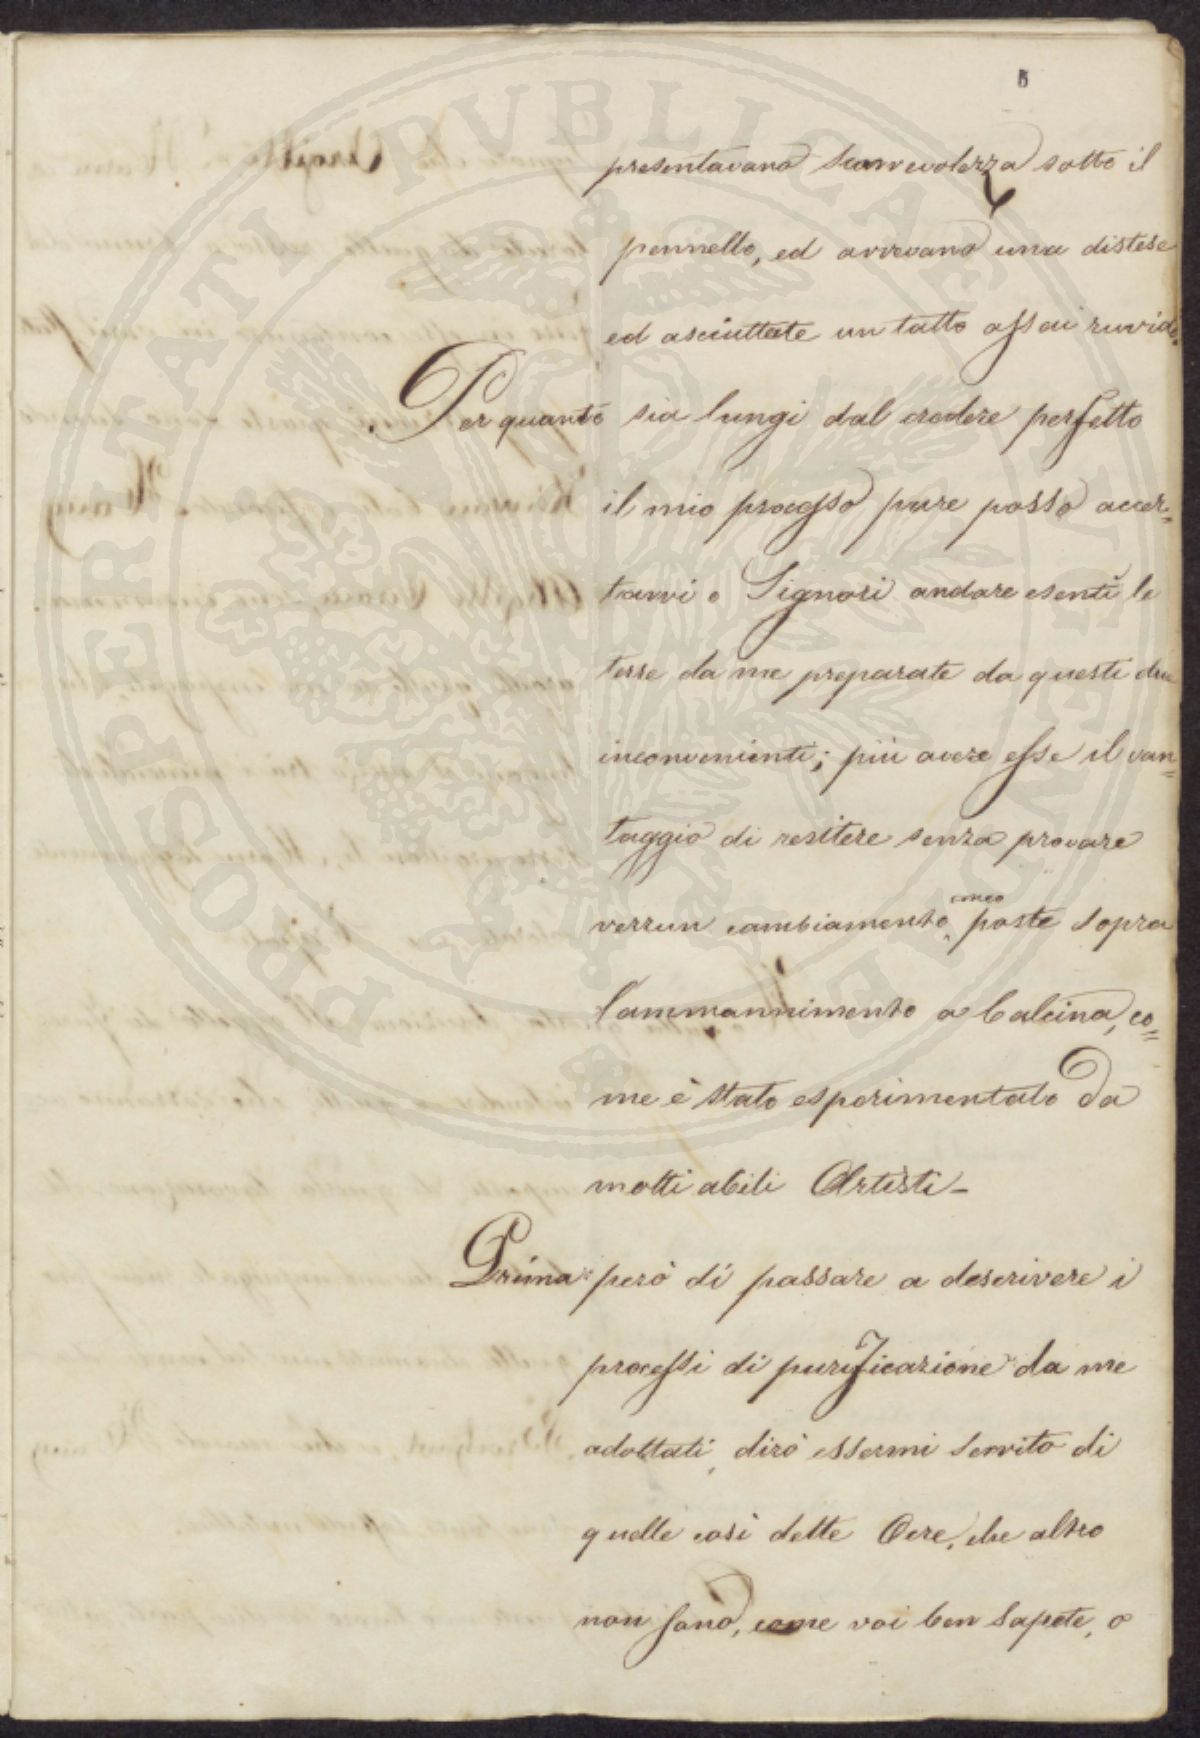 5
presentavano scorrevolezza sotto il
pennello, ed avevano una distese
ed asciuttate un tatto assai ruvido.
Per quanto sia lungi dal credere perfetto
il mio processo pure posso accer=
tarvi o Signori andare esenti le
terre da me preparate da questi due
inconvenienti; più avere esse il van=
taggio di resitere senza provare
verrun cambiamento poste sopra
l'ammannimento a Calcina, co=
me è stato esperimentato Da
molti abili Artisti_
Prima però di passare a descrivere i
processi di purificazione da me
adottati, dirò essermi servito di
quelle così dette Ocre, che altro
non sono, come voi ben sapete, o
PROSPERITATI PVBLICAE AVGENDAE